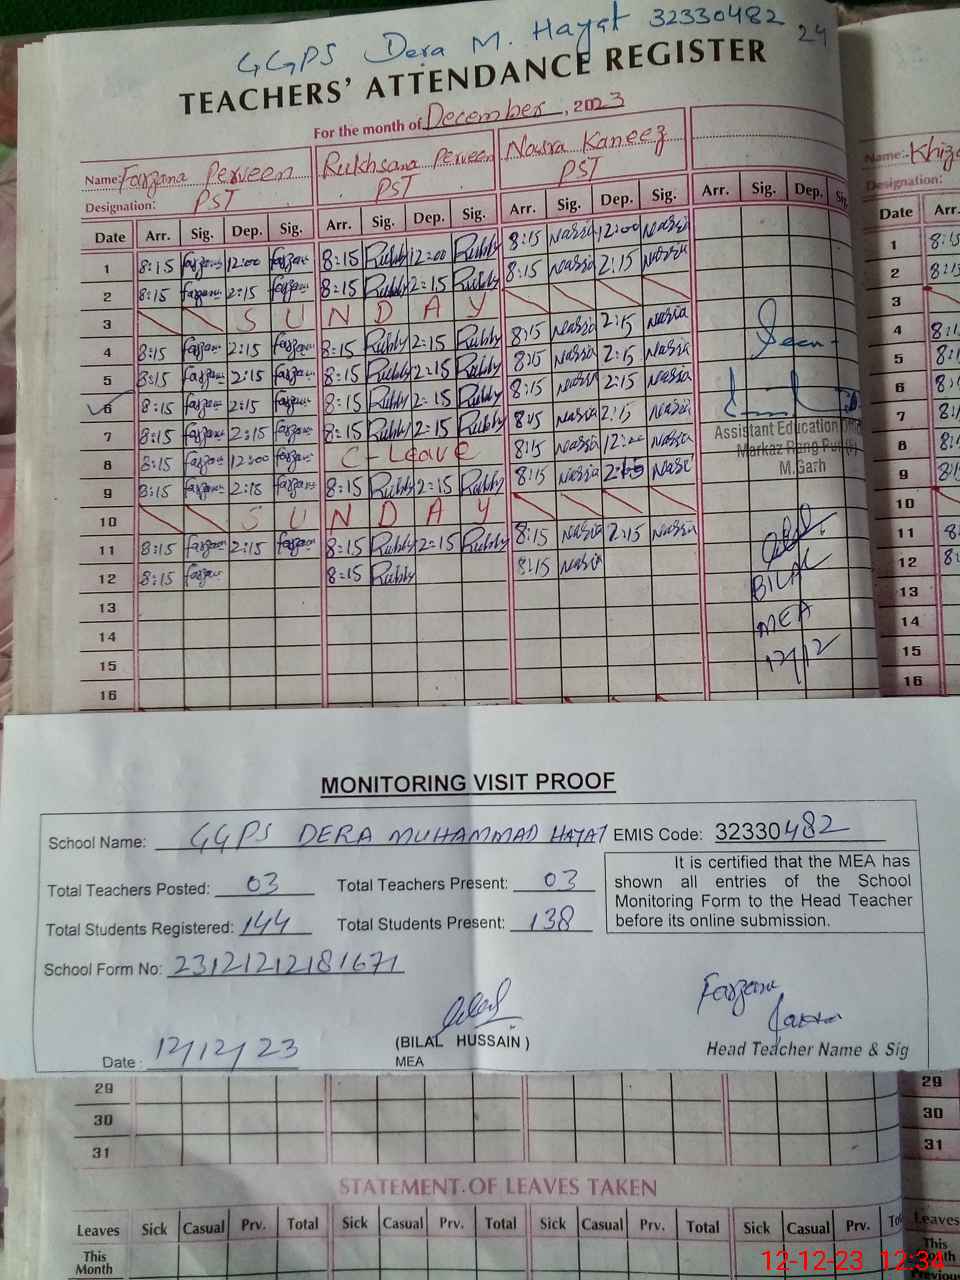 GGPS Dera M. Hayat 32330482
24
TEACHERS' ATTENDANCE REGISTER
For the month of December, 2023
Name: Farzana Perveen Rukhsana Perveen Nasra Kaneez Name:- Khiz
Designation: PST PST PST Designation:
Date Arr. Sig. Dep. Sig. Arr. Sig. Dep. Sig. Arr. Sig. Dep. Sig. Arr. Sig. Dep. Sig. Arr.
1 8:15 Farzana 12:00 Farzana 8:15 Rubby 12:00 Rubby 8:15 Nasra 12:00 Nasra 1 8:15
2 8:15 Farzana 2:15 Farzana 8:15 Rubby 2:15 Rubby 8:15 Nasra 2:15 Nasra 2 8:15
3 S U N D A Y 3
4 8:15 Farzana 2:15 Farzana 8:15 Rubby 2:15 Rubby 8:15 Nasra 2:15 Nasra Seen 4 8:1
5 8:15 Farzana 2:15 Farzana 8:15 Rubby 2:15 Rubby 8:15 Nasra 2:15 Nasra 5 8:1
6 8:15 Farzana 2:15 Farzana 8:15 Rubby 2:15 Rubby 8:15 Nasra 2:15 Nasra 6
7 8:15 Farzana 2:15 Farzana 8:15 Rubby 2:15 Rubby 8:15 Nasra 2:15 Nasra Assistant Education 7 8:1
8 8:15 Farzana 12:00 Farzana C-Leave 8:15 Nasra 12:00 Nasra Markaz Rang Pur (F) 8
9 8:15 Farzana 2:15 Farzana 8:15 Rubby 2:15 Rubby 8:15 Nasra 2:15 Nasra M.Garh 9
10 S U N D A Y 10
11 8:15 Farzana 2:15 Farzana 8:15 Rubby 2:15 Rubby 8:15 Nasra 2:15 Nasra 11 8:
12 8:15 Farzana 8:15 Rubby 8:15 Nasra BILAL 12 8:
13 MEA 13
14 14
15 12/12 15
16 16
MONITORING VISIT PROOF
School Name: GGPS DERA MUHAMMAD HAYAT EMIS Code: 32330482
Total Teachers Posted: 03 Total Teachers Present: 03
Total Students Registered: 144 Total Students Present: 138
School Form No: 23121212181671
It is certified that the MEA has
shown all entries of the School
Monitoring Form to the Head Teacher
before its online submission.
Farzana
Date: 12/12/23 (BILAL HUSSAIN) Head Teacher Name & Sig
MEA
29 29
30 30
31 31
STATEMENT OF LEAVES TAKEN
Leaves Sick Casual Prv. Total Sick Casual Prv. Total Sick Casual Prv. Total Sick Casual Prv. Leaves
This Month This Month
12-12-23 12:34